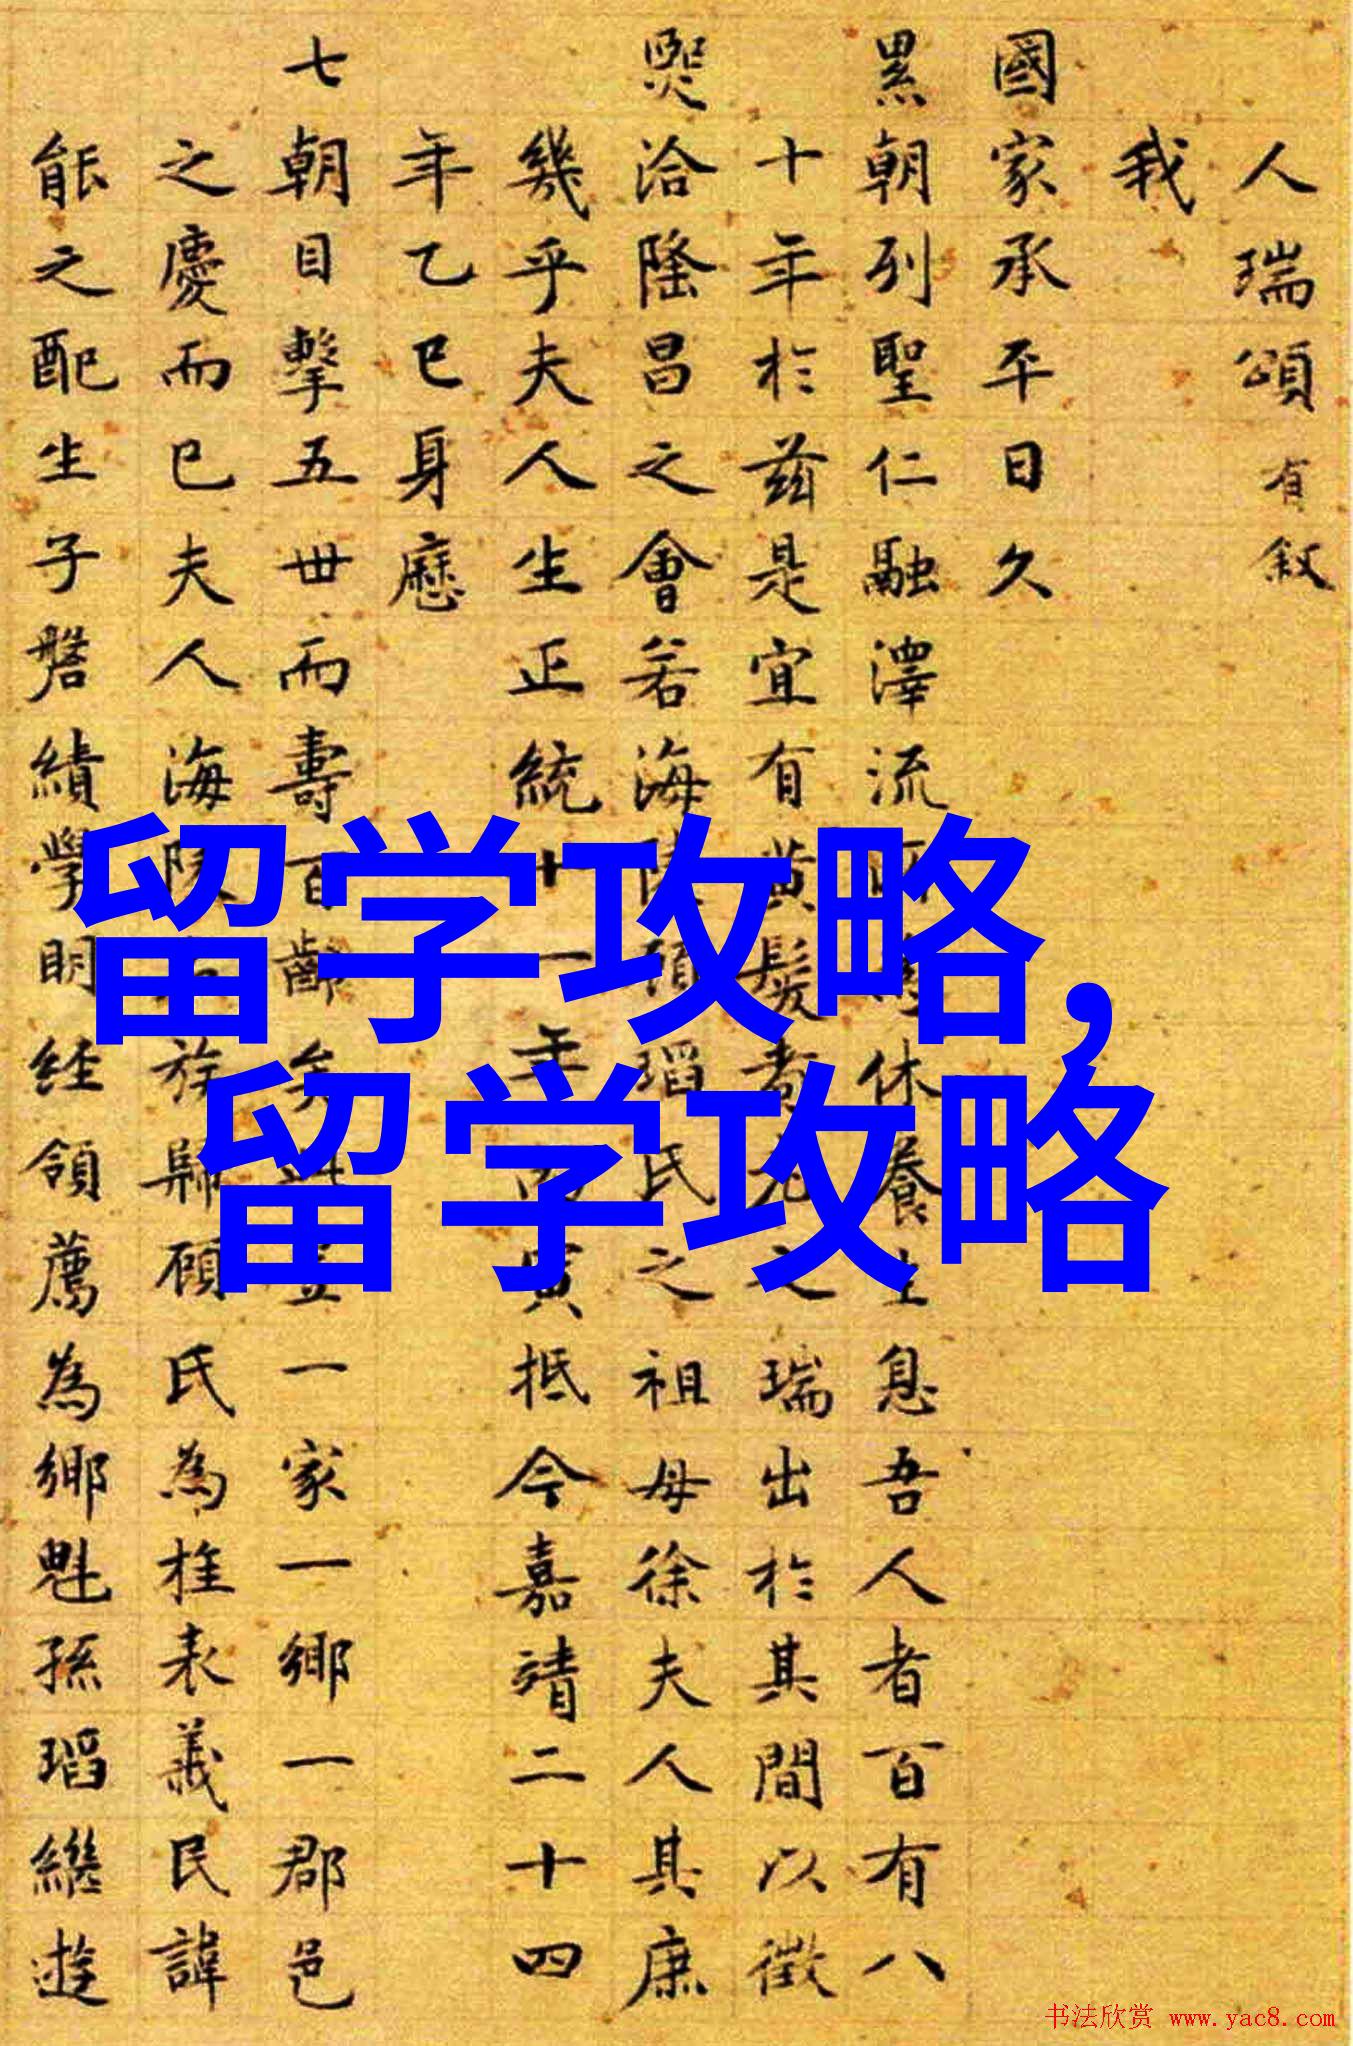 人瑞頌有敘
我
國家承平日久
累朝列聖仁融澤流休養生息吾人者百有八
十年於茲是宜有黃髮耇之瑞出於其間以徵
熙洽隆昌之會若海陳顧瑫氏之祖母徐夫人其庶
幾乎夫人生正統十一年寅抵今嘉靖二十四
年乙巳身歷
七朝目擊五世而壽百齡矣一家一鄉一郡邑
之慶而已夫人海陳族歸顧氏為旌表義民諱
能之配生子磐績學明經領薦為鄉魁孫瑫繼遊
留学攻略,
留学攻略
书法欣赏 www.yac8.com